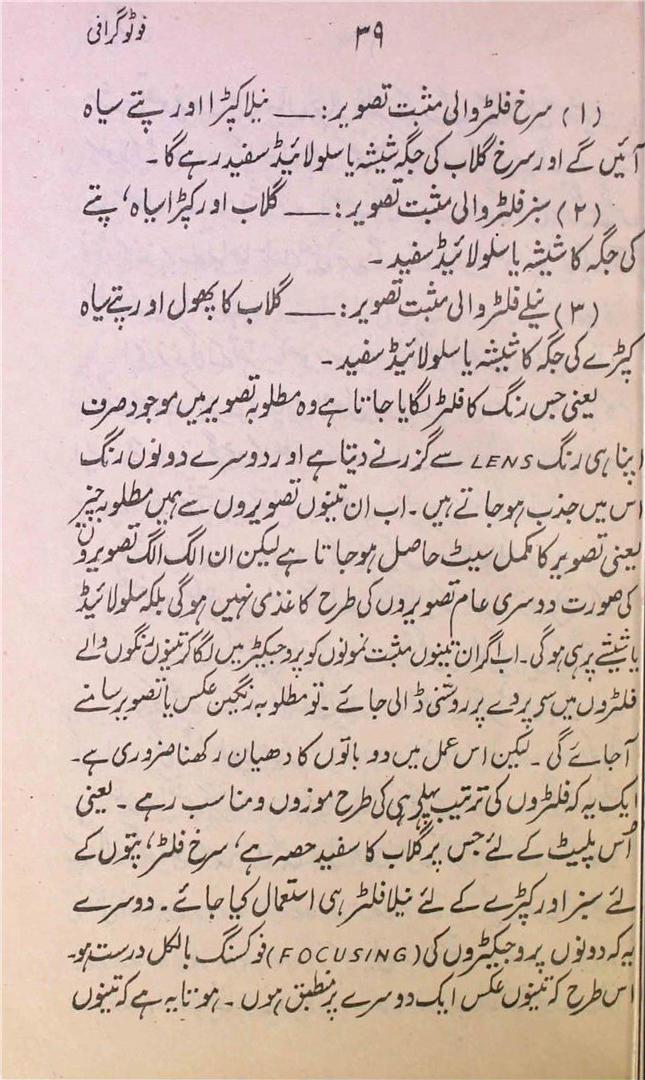 فوٹوگرافی
۳۹
(۱) سرخ فلٹر والی مثبت تصویر: ــــ نیلا کپڑا اور پتے سیاہ
آئیں گے اور سرخ گلاب کی جگہ شیشہ یا سلولائیڈ سفید رہے گا۔
(۲) سبز فلٹر والی مثبت تصویر: ــــ گلاب اور کپڑا سیاہ، پتے
کی جگہ کا شیشہ یا سلولائیڈ سفید۔
(۳) نیلے فلٹر والی مثبت تصویر: ــــ گلاب کا پھول اور پتے سیاہ
کپڑے کی جگہ کا شیشہ یا سلولائیڈ سفید۔
یعنی جس رنگ کا فلٹر لگایا جاتا ہے وہ مطلوبہ تصویر میں موجود صرف
اپنا ہی رنگ LENS سے گزرنے دیتا ہے اور دوسرے دونوں رنگ
اس میں جذب ہو جاتے ہیں۔ اب ان تینوں تصویروں سے ہمیں مطلوبہ چیز
یعنی تصویر کا مکمل سیٹ حاصل ہو جاتا ہے لیکن ان الگ الگ تصویروں
کی صورت دوسری عام تصویروں کی طرح کاغذی نہیں ہوگی بلکہ سلولائیڈ
یا شیشے پر ہی ہوگی۔ اب اگر ان تینوں مثبت نمونوں کو پروجیکٹر میں لگا کر تینوں رنگوں والے
فلٹروں میں سے پردے پر روشنی ڈالی جائے۔ تو مطلوبہ رنگین عکس یا تصویر سامنے
آجائے گی۔ لیکن اس عمل میں دو باتوں کا دھیان رکھنا ضروری ہے۔
ایک یہ کہ فلٹروں کی ترتیب پہلے ہی کی طرح موزوں و مناسب رہے۔ یعنی
اُس پلیٹ کے لئے جس پر گلاب کا سفید حصہ ہے، سرخ فلٹر، پتوں کے
لئے سبز اور کپڑے کے لئے نیلا فلٹر ہی استعمال کیا جائے۔ دوسرے
یہ کہ دونوں پروجیکٹروں کی (FOCUSING) فوکسنگ بالکل درست ہو۔
اس طرح کہ تینوں عکس ایک دوسرے پر منطبق ہوں۔ ہوتا یہ ہے کہ تینوں